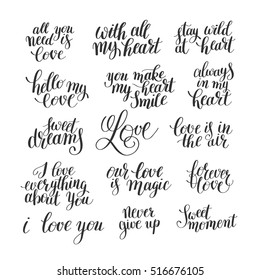 all you
need is
love
with all
my heart
stay wild
at heart
hello my
love
you make
my heart
smile
always
in my
heart
sweet
dreams
Love
love is in
the air
I love
everything
about you
our love
is magic
forever
love
i love you
never
give up
Sweet
moment
shutterstock.com · 516676105